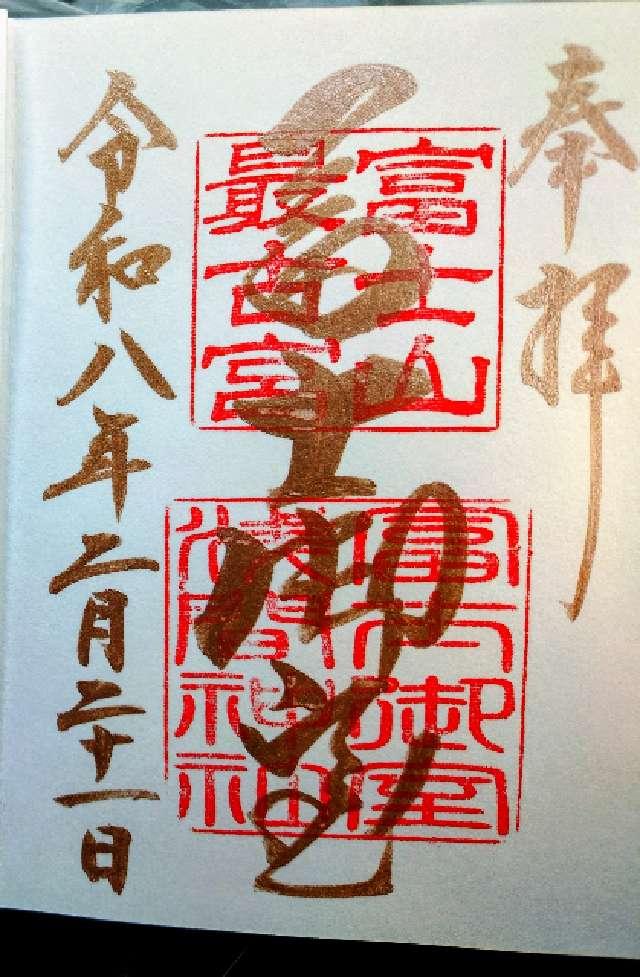 奉拝
富士山
最古宮
富士御室
冨士御室
浅間神社
令和八年二月二十一日